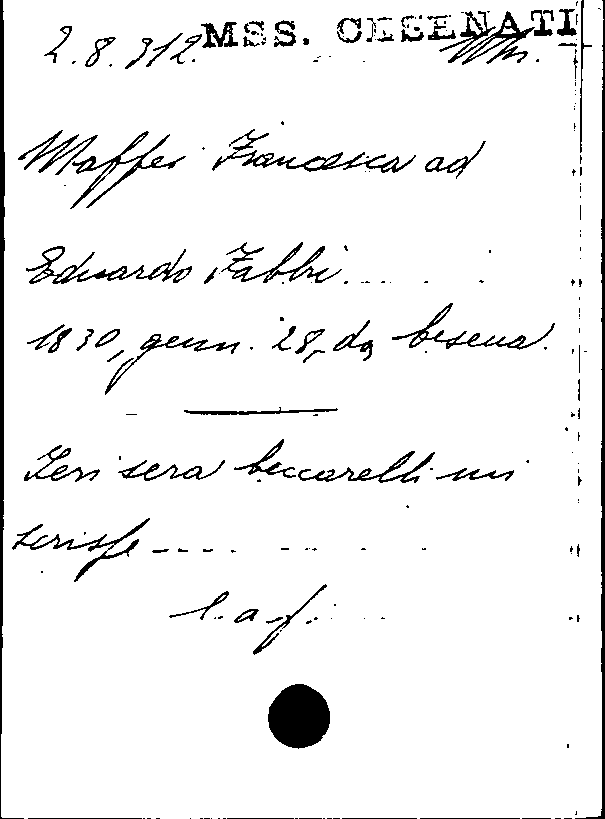 2.8.312. MSS. CESENATI
Maffei Francesca ad
Eduardo Fabbri.....
1830, genn. 28, da Cesena.
Ieri sera Ceccarelli mi
scrisse ---- - - - - -
l. a f. ...